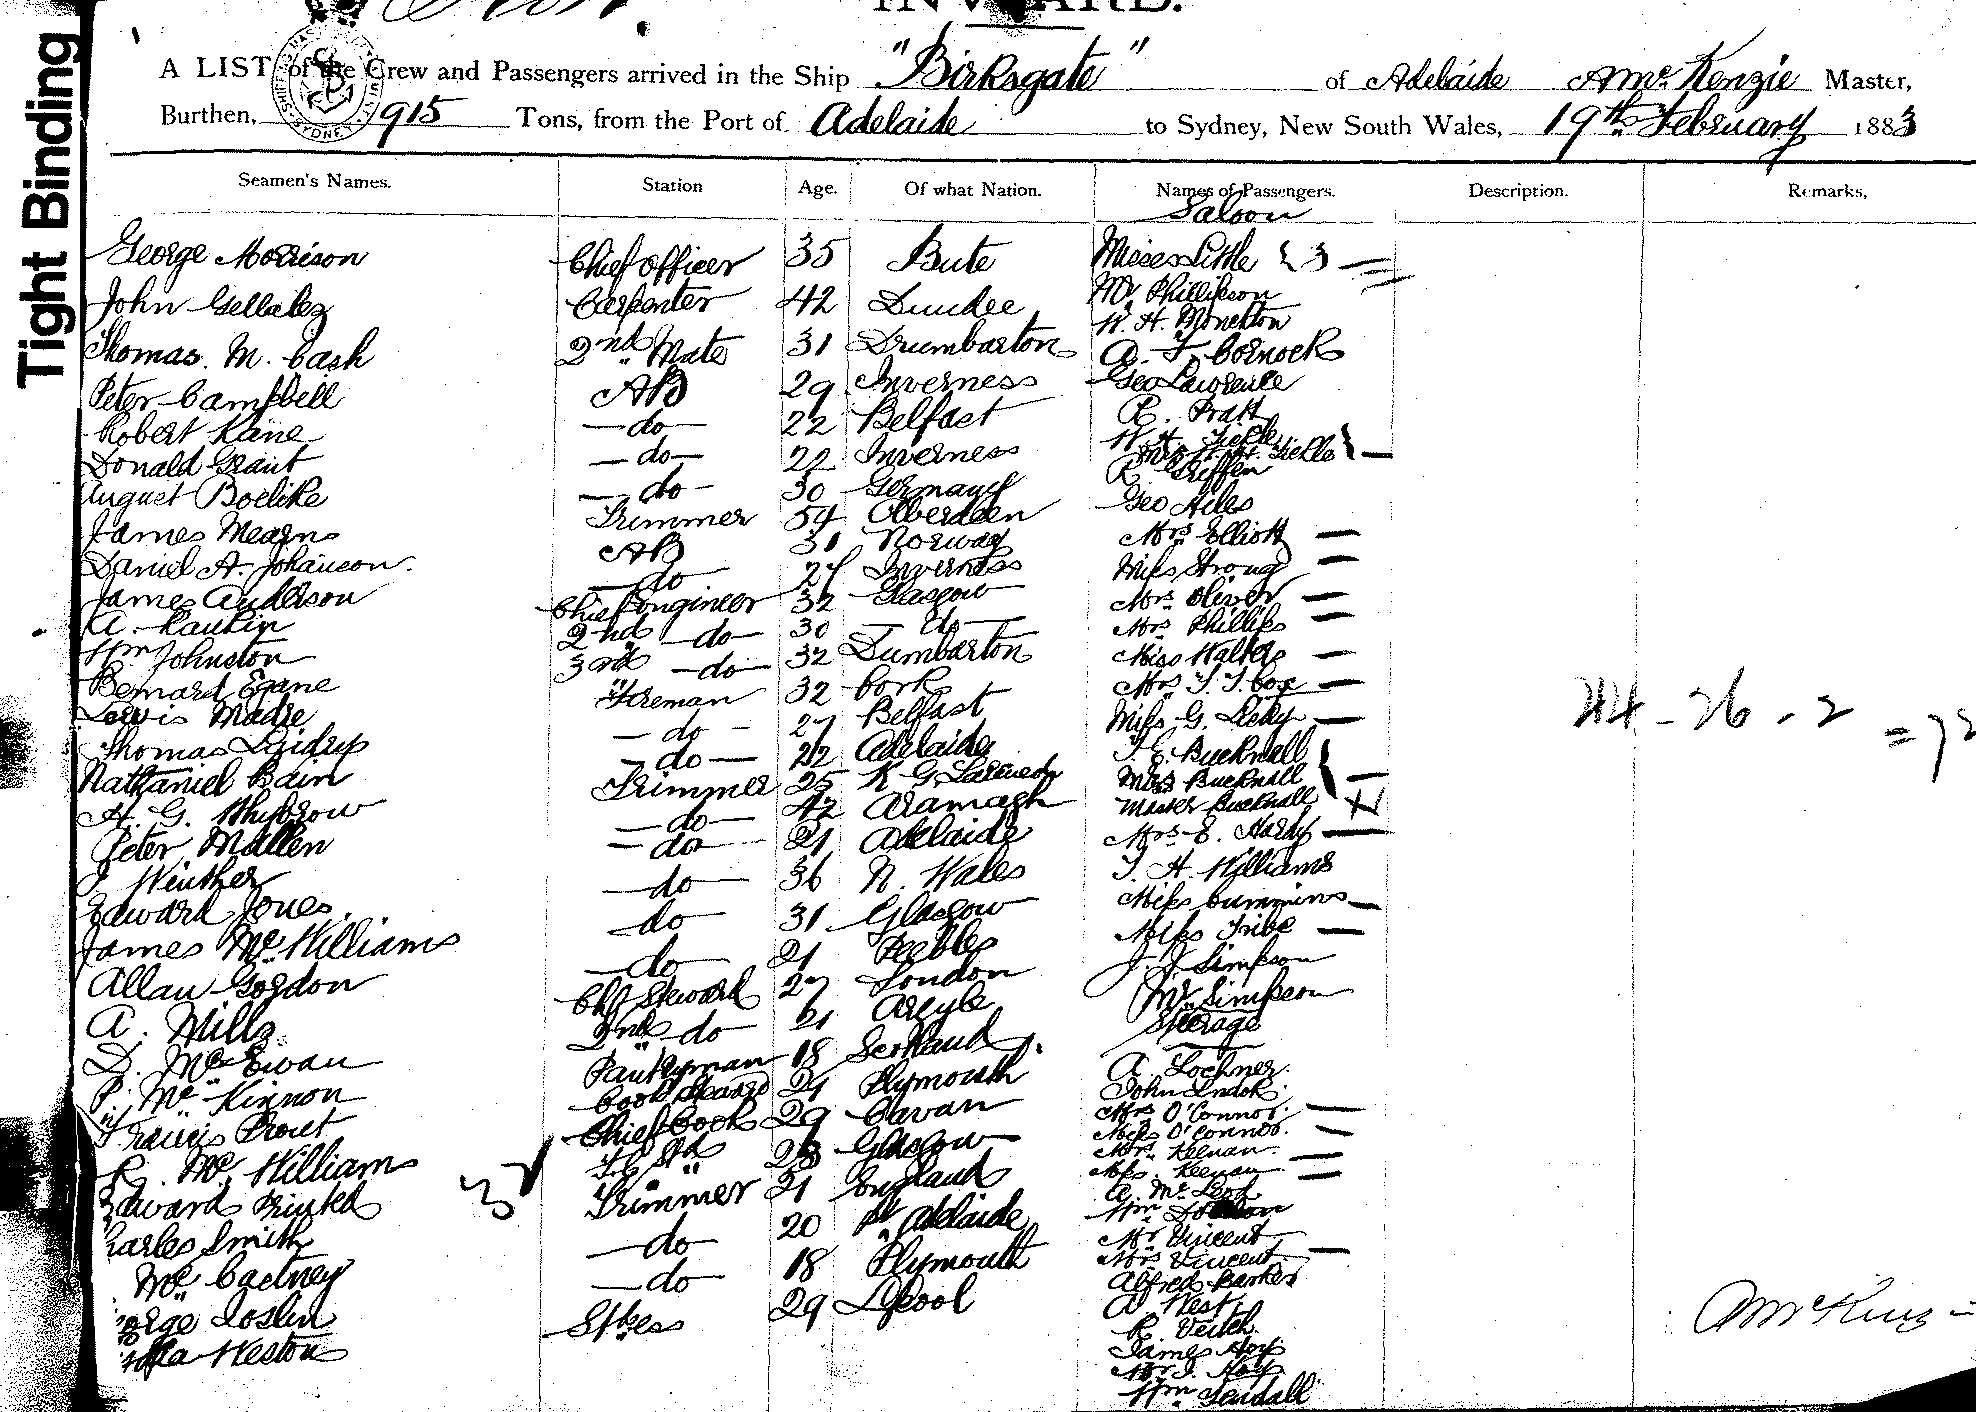 Tight Binding
INWARD.
A LIST of the Crew and Passengers arrived in the Ship "Birksgate" of Adelaide A McKenzie Master,
Burthen, 915 Tons, from the Port of Adelaide to Sydney, New South Wales, 19th February 1883
Seamen's Names. Station Age. Of what Nation. Names of Passengers. Description. Remarks,
Saloon
George Morrison Chief Officer 35 Bute Misses Little } 3
John Carpenter 42 Dundee Mr. Phillipson
Thomas. M. Cash 2nd Mate 31 Drumbarton W. H. Monckton
Peter Campbell AB 29 Inverness A. T. Cornock
Robert Kane do 22 Belfast Geo Lawrence
Donald Grant do 22 Inverness R. Pratt
August Boelike do 30 Germany W. H.
James Mearns Trimmer 54 Aberdeen Mrs W. H.
Daniel A. Johanson. AB 31 Norway R. Griffen
James Anderson do Inverness Geo Hiles
A. Rankin Chief Engineer 32 Glasgow Mrs Elliott
Wm Johnston 2nd do 30 do Miss Strong
Bernard Egane 3rd do 32 Dumbarton Mrs Oliver
Lewis Madre Fireman 32 Cork Mrs Phillips
Thomas do 27 Belfast Miss Walters
Nathaniel Bain do 22 Adelaide Mrs T. T. Cox
H. G. Whybrow Trimmer 25 K G Miss G.
Peter Mallen do 42 Aramagh T. E. Bucknall
J. Winther do 21 Adelaide Mrs Bucknall
Edward Jones. do 36 N. Wales Master Bucknall
James McWilliams do 31 Glasgow Mrs E. Hardy
Allan Gordon do 21 Peebles T. H. Williams
A. Mills Chf Steward 27 London Miss Cummins
D. McEwan 2nd do 21 Argyle Miss Tribe
P. McKinnon Pantryman 18 Scotland J. J. Simpson
Francis Prout 21 Plymouth Mr Simpson
R. McWilliam Chief Cook 29 Cavan Steerage
Edward Printed 28 Glasgow A. Lochner.
Charles Smith Trimmer 21 England John
McCartney do 20 Pt Adelaide Mrs O'Connor.
George Joslin do 18 Plymouth Miss O'Connor.
Weston Stkess 29 Lpool Mrs. Keenan
Miss. Keenan
A. McLeod
Wm
Mr. Vincent
Mrs Vincent
Alfred Barker
A. West
R. Veitch
James Hoy
Mrs J. Hoy
Wm Tendall
44 - 26 - 2
= 72
32
A McKenz